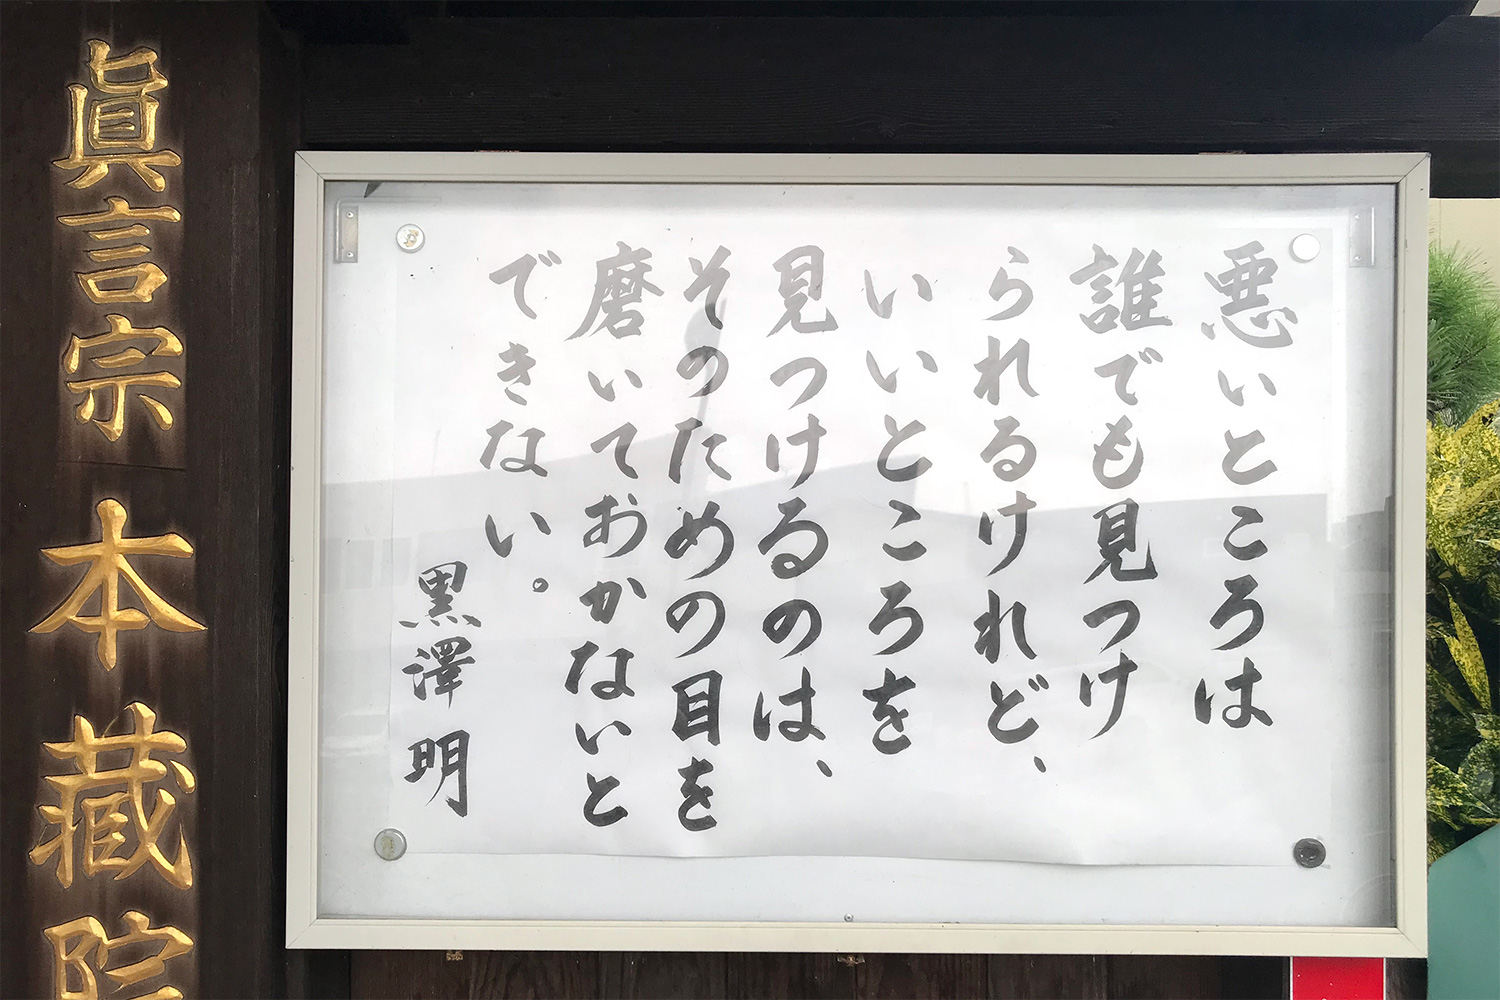 悪いところは
誰でも見つけ
られるけれど、
いいところを
見つけるのは、
そのための目を
磨いておかないと
できない。
黒澤明
眞言宗 本藏院